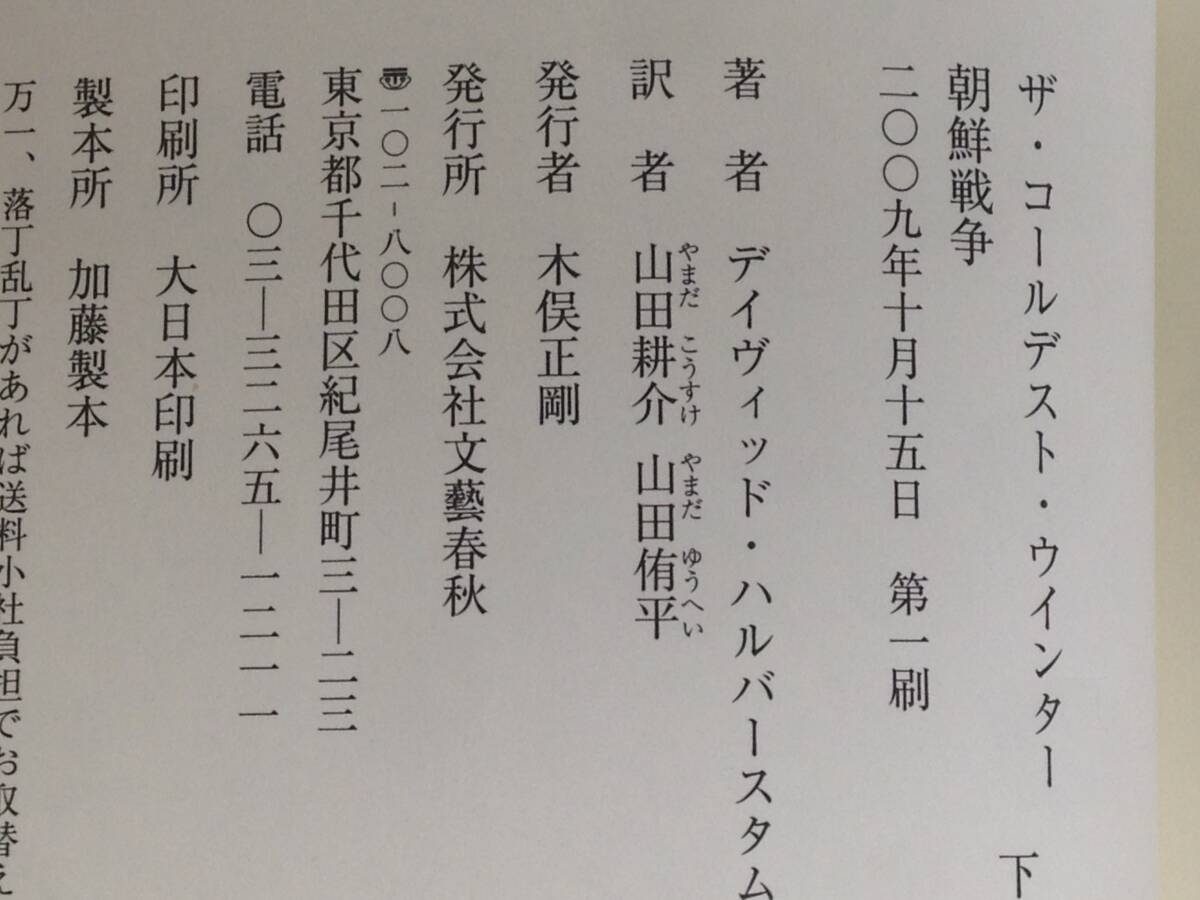 ザ・コールデスト・ウインター 下
朝鮮戦争
二〇〇九年十月十五日 第一刷
著者 デイヴィッド・ハルバースタム
訳者 山田耕介 山田侑平
やまだ こうすけ やまだ ゆうへい
発行者 木俣正剛
発行所 株式会社文藝春秋
〠一〇二-八〇〇八
東京都千代田区紀尾井町三―二三
電話 〇三―三二六五―一二一一
印刷所 大日本印刷
製本所 加藤製本
万一、落丁乱丁があれば送料小社負担でお取替え